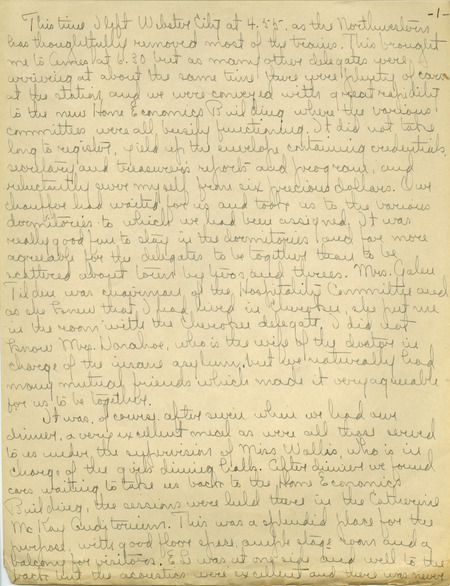 -1-
This time I left Webster City at 4.55. as the Northwestern
has thoughtfully removed most of the trains. This brought
me to Ames at 6.30 but as many other delegates were
arriving at about the same time there were plenty of cars
at the station and we were conveyed with great rapidity
to the new Home Economics Building where the various
committees were all busily functioning. It did not take
long to register, yield up the envelope containing credentials,
secretary and treasurer's reports and program, and
reluctantly sever myself from six precious dollars. Our
chauffeur had waited for us and took us to the various
dormitories to which we had been assigned. It was
really good fun to stay in the dormitories and far more
agreeable for the delegates to be together than to be
scattered about town by twos and threes. Mrs. Galen
Tilden was chairman of the Hospitality Committee and
as she knew that I had lived in Cherokee, she put me
in the room with the Cherokee delegate, I did not
know Mrs. Donahoe, who is the wife of the doctor in
charge of the insane asylum, but we naturally had
many mutual friends which made it very agreeable
for us to be together.
It was, of course, after seven when we had our
dinner, a very excellent meal as were all those served
to us under the supervision of Miss Wallis, who is in
charge of the girls dining halls. After dinner we found
cars waiting to take us back to the Home Economics
Building, the sessions were held there in the Catherine
McKay Auditorium. This was a splendid place for the
purpose, with good floor space, ample stage room and a
balcony for visitors. E.L. was at one side and well to the
back but the acoustics were excellent and there was never